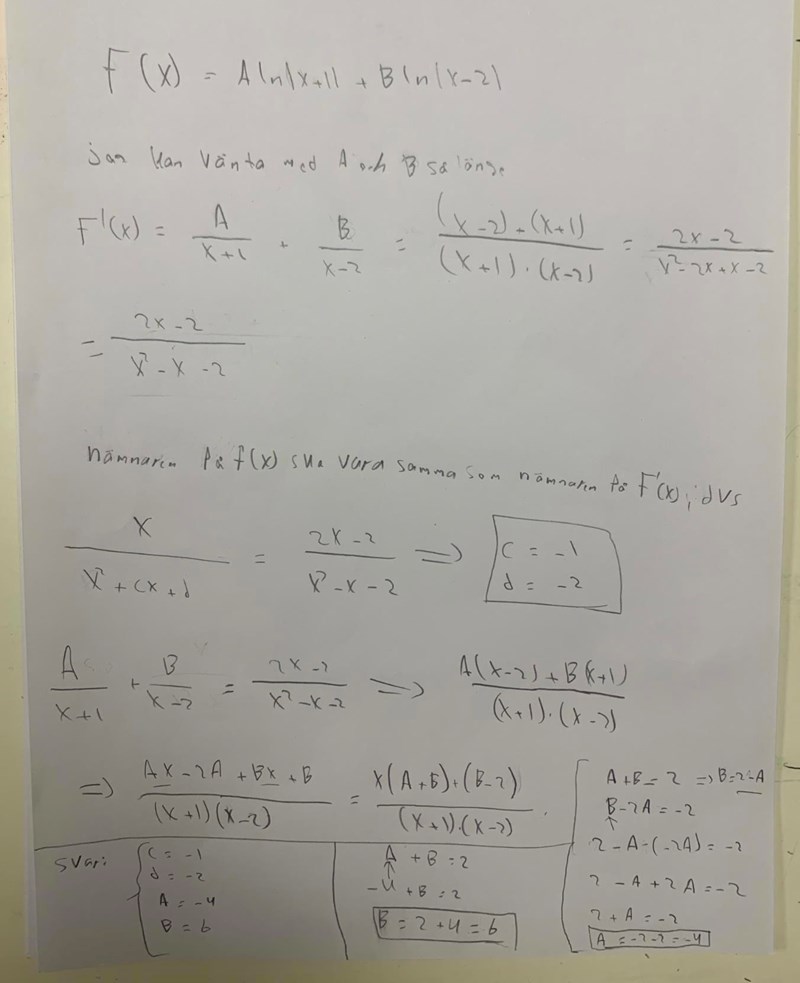 F(x) = A ln|x+1| + B ln|x-2|
jag kan vänta med A och B så länge
F'(x) = A/(x+1) + B/(x-2) = ((x-2)+(x+1))/((x+1)·(x-2)) = (2x-2)/(x²-2x+x-2)
= (2x-2)/(x²-x-2)
nämnaren på f(x) ska vara samma som nämnaren på F'(x), dvs
x/(x²+cx+d) = (2x-2)/(x²-x-2) => c = -1
d = -2
A/(x+1) + B/(x-2) = (2x-2)/(x²-x-2) => (A(x-2)+B(x+1))/((x+1)·(x-2))
=> (Ax-2A+Bx+B)/((x+1)(x-2)) = (x(A+B)+(B-2))/((x+1)·(x-2)).
A+B = 2 => B=2-A
B-2A = -2
2-A-(-2A) = -2
2-A+2A = -2
2+A = -2
A = -2-2 = -4
A + B = 2
-4 + B = 2
B = 2+4 = 6
svar:
c = -1
d = -2
A = -4
B = 6